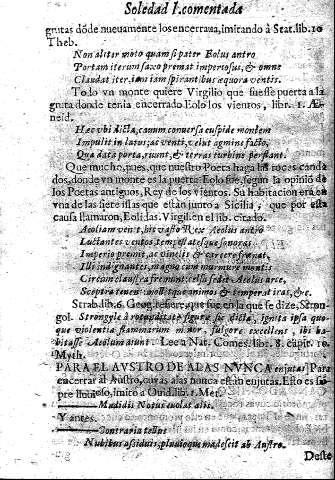 Soledad I. comentada
grutas dōde nueuamente los encerraua, imitando à Stat. lib. 10
Theb.
Non aliter moto quam si pater Eolus antro
Portam iterum saxo premat imperiosus, & omne
Claudat iter, iam iam spirantibus æquora ventis.
Todo vn monte quiere Virgilio que fuesse puerta a la
gruta donde tenia encerrado Eolo los vientos, libr. 1. Æ-
neid.
Hæc vbi dicta, cauum conuersa cuspide montem
Impulit in latus; ac venti, velut agmine facto,
Qua data porta, ruunt, & terras turbine perflant.
Que mucho, pues, que nuestro Poeta haga las roces canda
dos, donde vn monte es la puerta. Eolo fue, segun la opinió de
los Poetas antiguos, Rey de los vientos. Su habitacion era en
vna de las siete islas que están junto a Sicilia, que por esta
causa llamaron, Eolidas. Virgil. en el lib. citado.
Aeoliam venit, hic vasto Rex Aeolus antro
Luctantes ventos tempestatesque sonoras
Imperio premit, ac vinclis & carcere frænat,
Illi indignantes, magno cum murmure montis
Circum claustra fremunt: celsa sedet Aeolus arce,
Sceptra tenens mollitque animos & temperat iras, &c.
Strab. lib. 6. Geog. refiere, que fue en la que se dize, Stron
gol. Strongyle à rotunditate figuræ sic dicta, ignita ipsa quo-
que violentia flammarum minor, fulgore excellens, ibi ha-
bitasse Aeolum aiunt. Lee a Nat. Comes. libr. 8. capit. 10.
Myth.
PARA EL AVSTRO DE ALAS NVNCA enjutas Para
encerrar al Austro, cuyas alas nunca están enjutas. Esto es siē
pre llouiolo, imitò a Ouid. lib. 1. Met.
Madidis Notus euolat alis.
Y antes.
Contraria tellus
Nubibus assiduis, pluuioque madescit ab Austro.
Deste